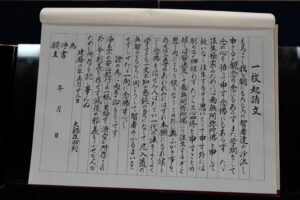 一枚起請文
もろこし我が朝にもろもろの智者達の沙汰し
申さるる観念の念にもあらずまた学問をして
念の心を悟りて申す念仏にもあらずただ
往生極楽のためには南無阿弥陀仏と申して
疑いなく往生するぞと思いとりて申す外には
別の子細候わずただし三心四修と申すことの
候うは皆決定して南無阿弥陀仏にて往生するぞと
思ううちにこもり候うなりこの外に奥ふかき事を
存ぜば二尊のあわれみにはずれ本願にもれ候う
べし念仏を信ぜん人はたとい一代の法をよくよく
学すとも一文不知の愚鈍の身になして尼入道の
無智のともがらに同じうして智者のふるまいを
せずしてただ一向に念仏すべし
証の為に両手印をもってす
浄土宗の安心起行この一紙に至極せり源空が所存この
外に全く別義を存ぜず滅後の邪義をふせがんが
ために所存を記し畢んぬ
建暦二年正月二十三日 大師在御判
為
浄書
願主 年 月 日